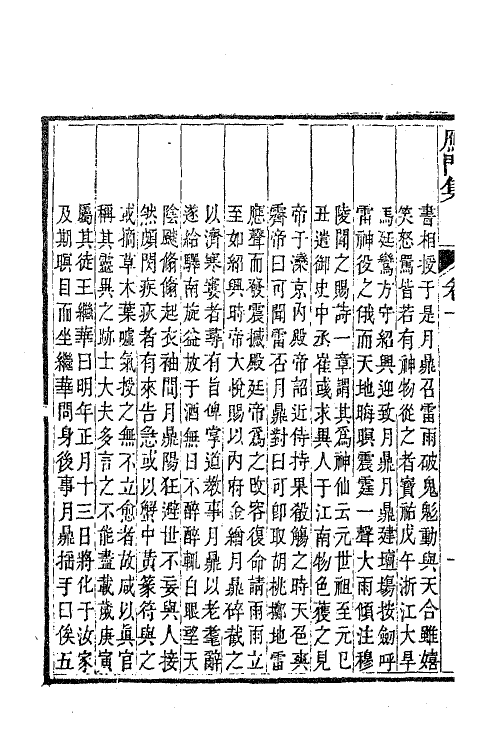 鴈門集
卷一
一
書相授于是月鼎召雷雨破鬼魁動與天合雖嬉
笑怒罵皆若有神物從之者寶祐戊午浙江大旱
馬廷鸞方守紹興迎致月鼎月鼎建壇場按劒呼
雷神役之俄而天地晦暝震霆一聲大雨傾注穆
陵聞之賜詩一章謂其爲神仙云元世祖至元己
丑遣御史中丞崔彧求異人于江南物色獲之見
帝于灤京内殿帝詔近侍持果殽觴之時天色爽
霽帝曰可聞雷否月鼎對曰可卽取胡桃擲地雷
應聲而發震撼殿廷帝爲之改容復命請雨雨立
至如紹興時帝大悅賜以内府金繒月鼎碎截之
以濟寒窶者尋有旨俾掌道敎事月鼎以老耄辭
遂給驛南旋益放于酒無日不醉醉輒白眼望天
陰颷翛翛起衣袖間月鼎陽狂避世不妄與人接
然頗閔疾疢者有來告急或以蟹中黃篆符與之
或摘草木葉噓氣授之無不立愈者故咸以眞官
稱其靈異之跡士大夫多言之不能盡載歲庚寅
屬其徒王繼華曰明年正月十三日將化于汝家
及期暝目而坐繼華問身後事月鼎搖手曰俟五